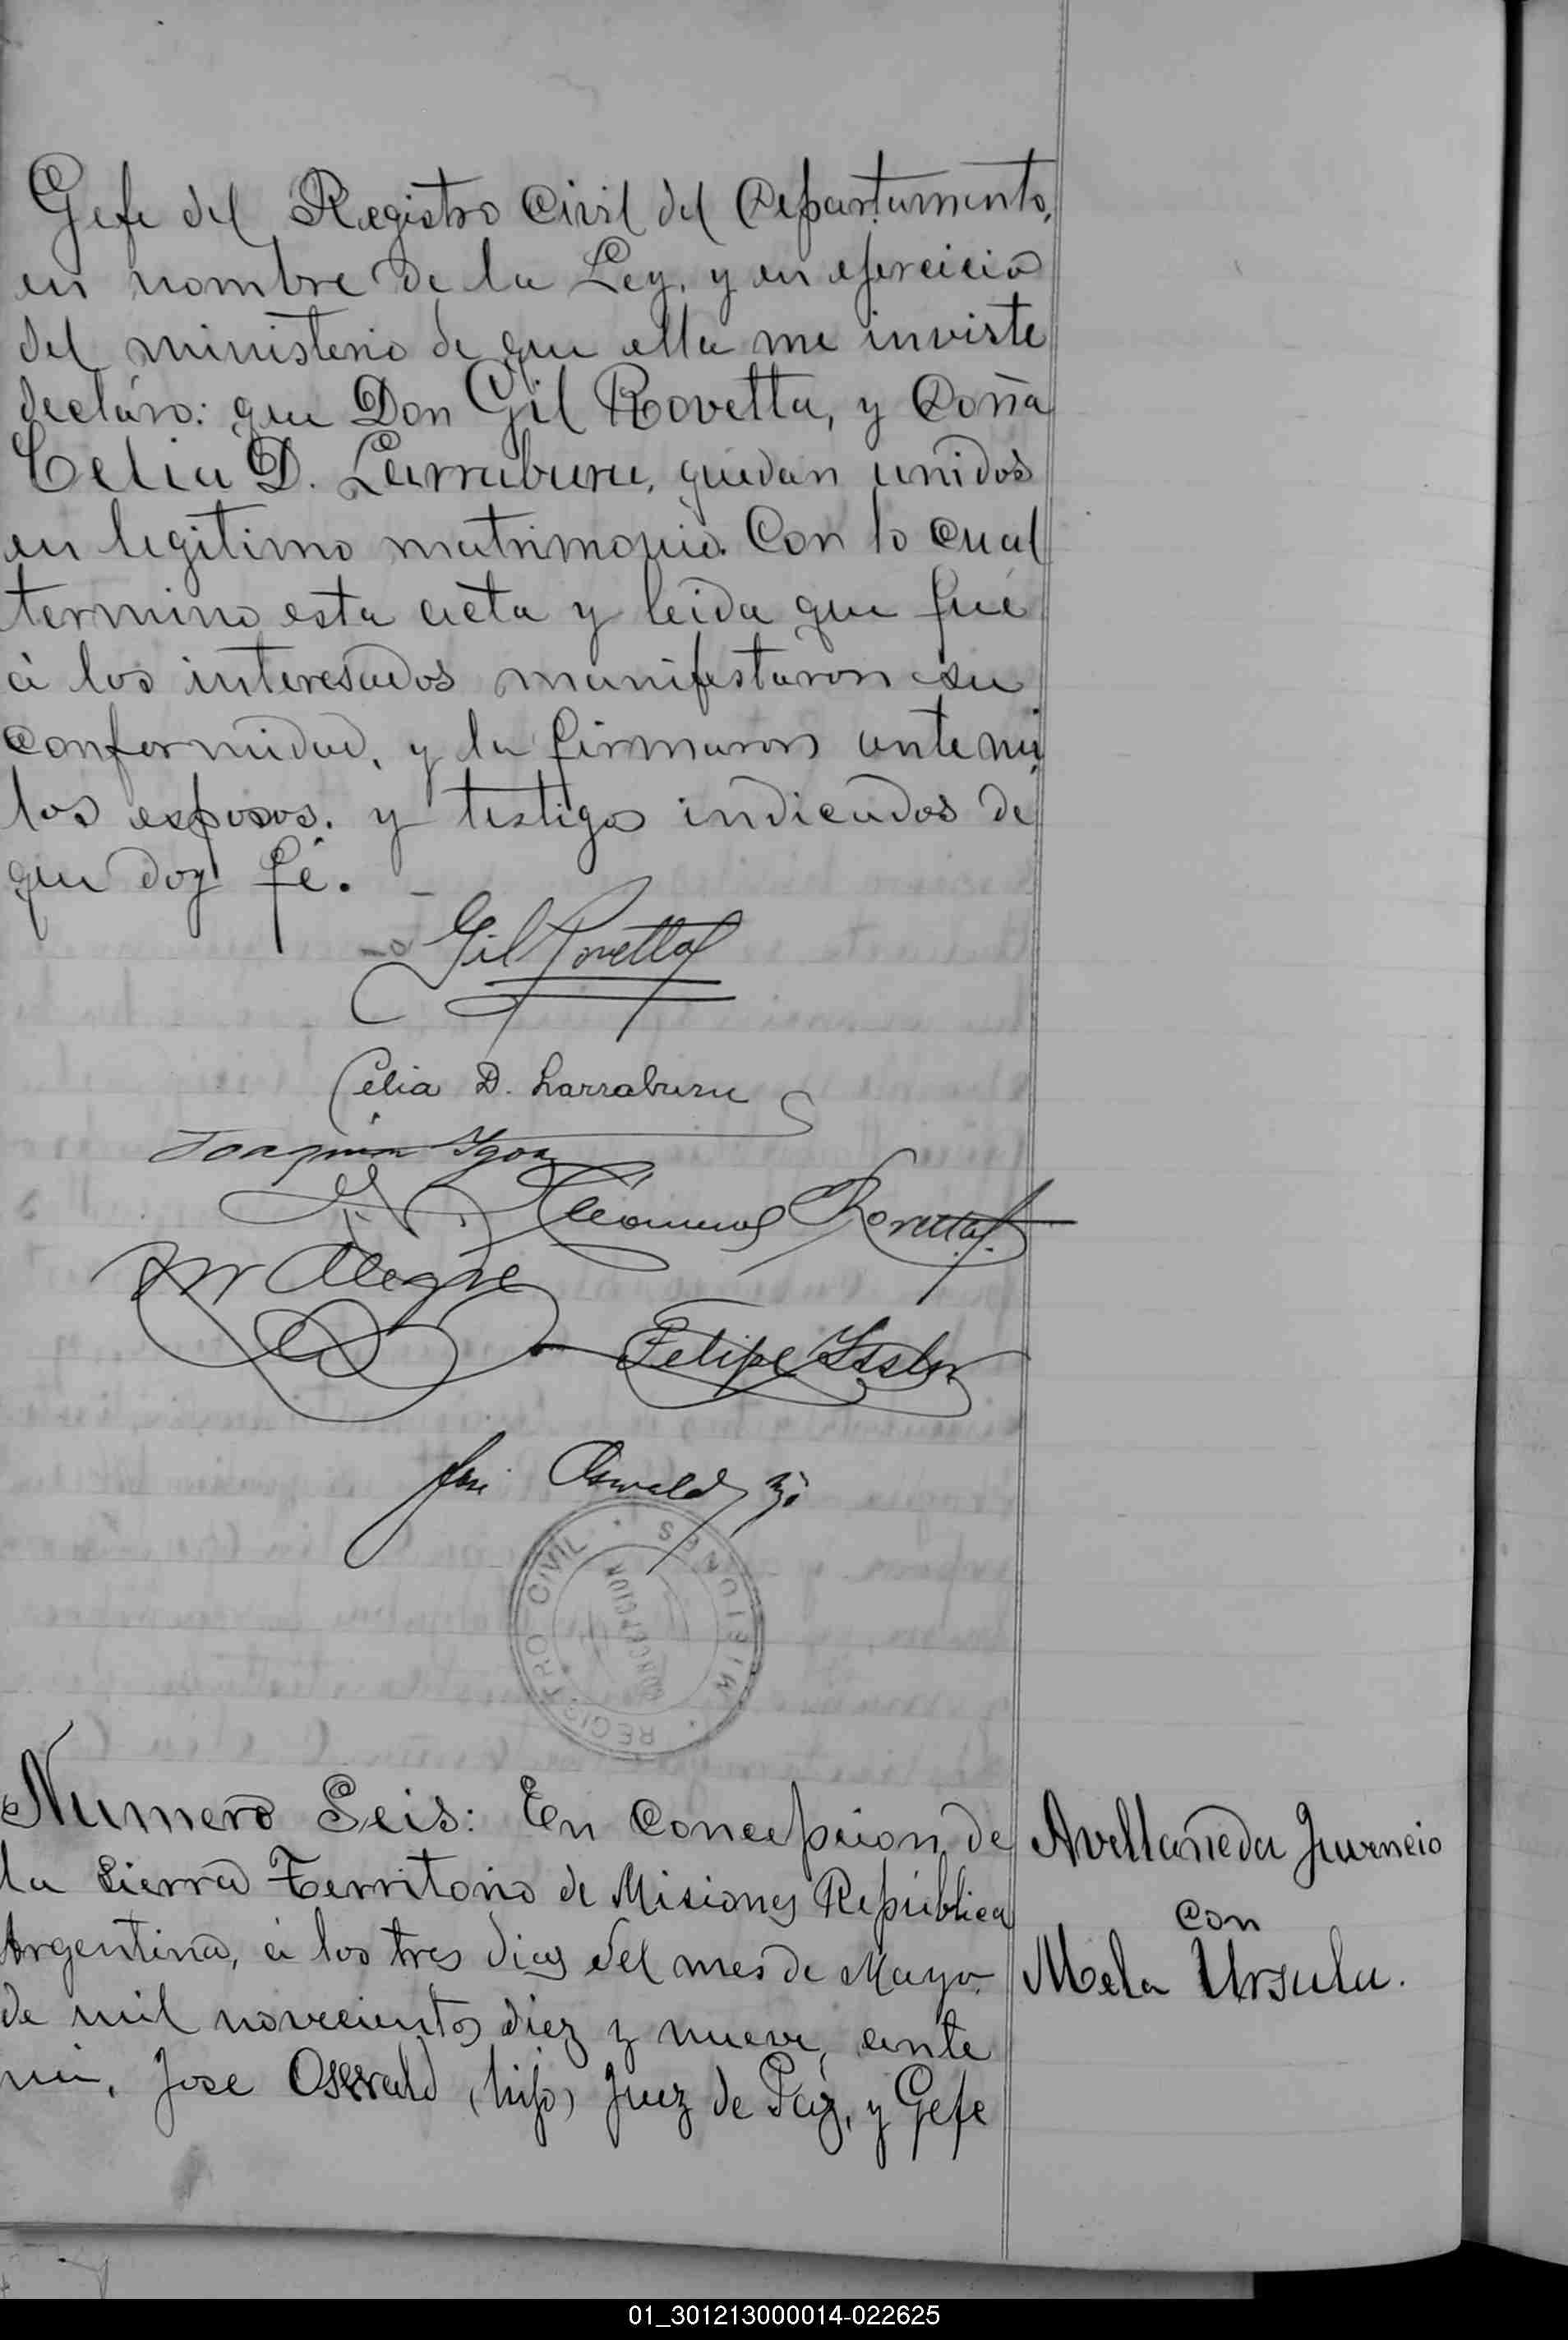 Gefe del Registro Civil del Departamento,
en nombre de la Ley, y en ejercicio
del ministerio de que ella me inviste
declaro: que Don Gil Rovetta, y Doña
Celia D. Larraburu, quedan unidos
en legitimo matrimonio. Con lo cual
termino esta acta y leida que fué
á los interesados manifestaron su
conformidad, y la firmaron ante mi,
los esposos. y testigos indicados de
que doy fé. —
Gil Rovetta
Celia D. Larraburu
Joaquin
Rovetta
Alegre
Felipe
José Oswald hijo
REGISTRO CIVIL • MISIONES •
CONCEPCION
Numero Seis: En Concepcion de
la Sierra Territorio de Misiones República
Argentina, á los tres dias del mes de Mayo
de mil novecientos diez y nueve, ante
mi, Jose Oswald (hijo) Juez de Paz, y Gefe
Avellaneda Juvencio
con
Mela Ursula.
01_301213000014-022625